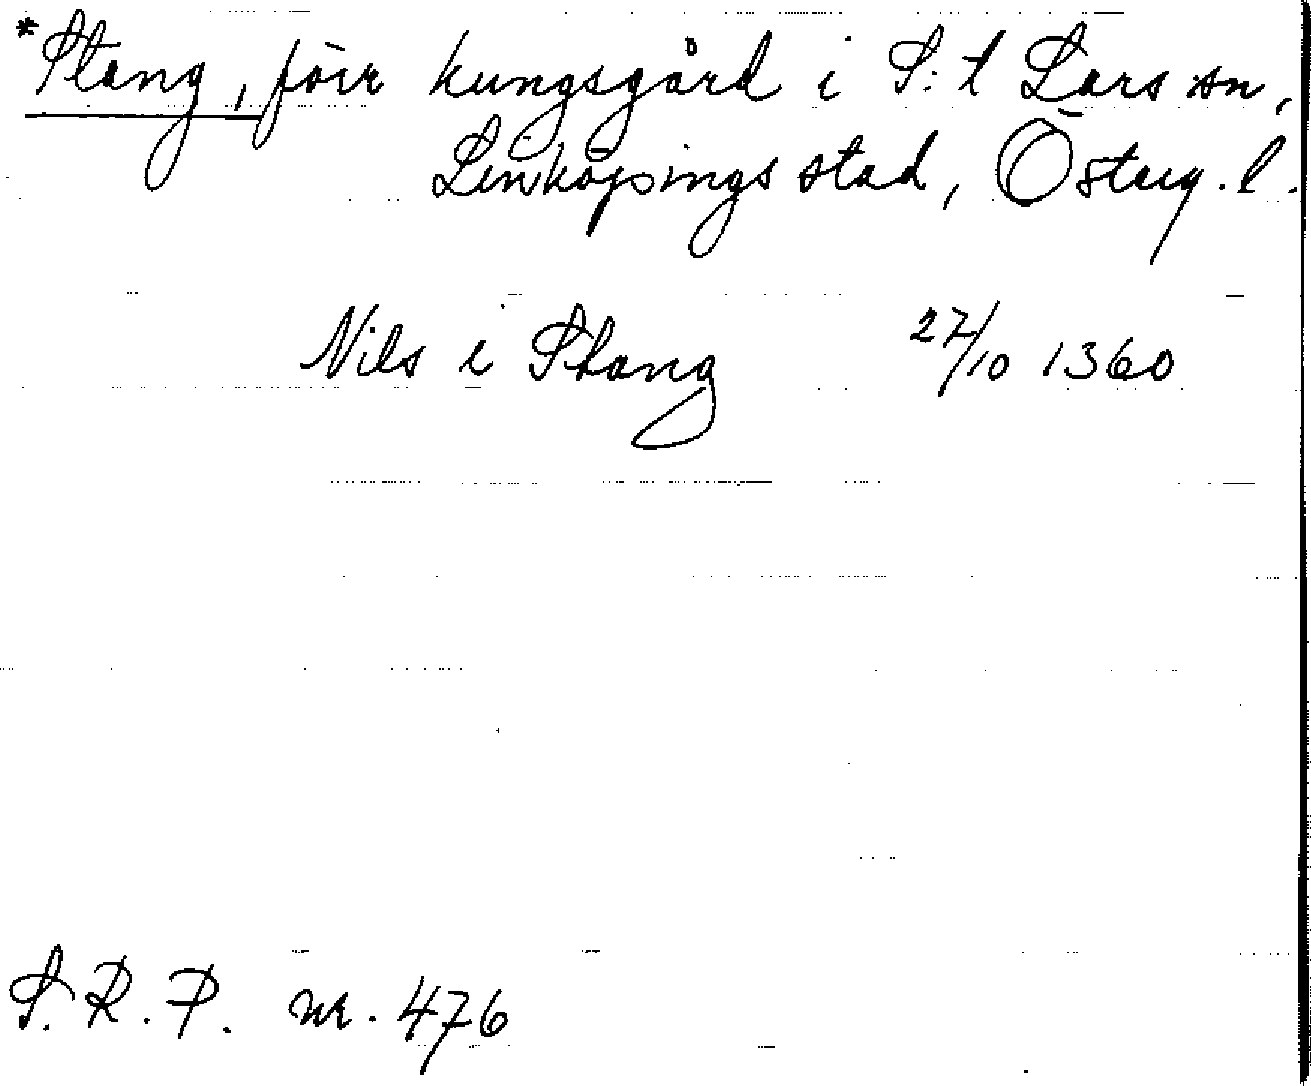 *Stang, förr kungsgård i S:t Lars sn,
Linköpings stad, Österg. l.
Nils i Stang 27/10 1360
S.R.P. nr. 476